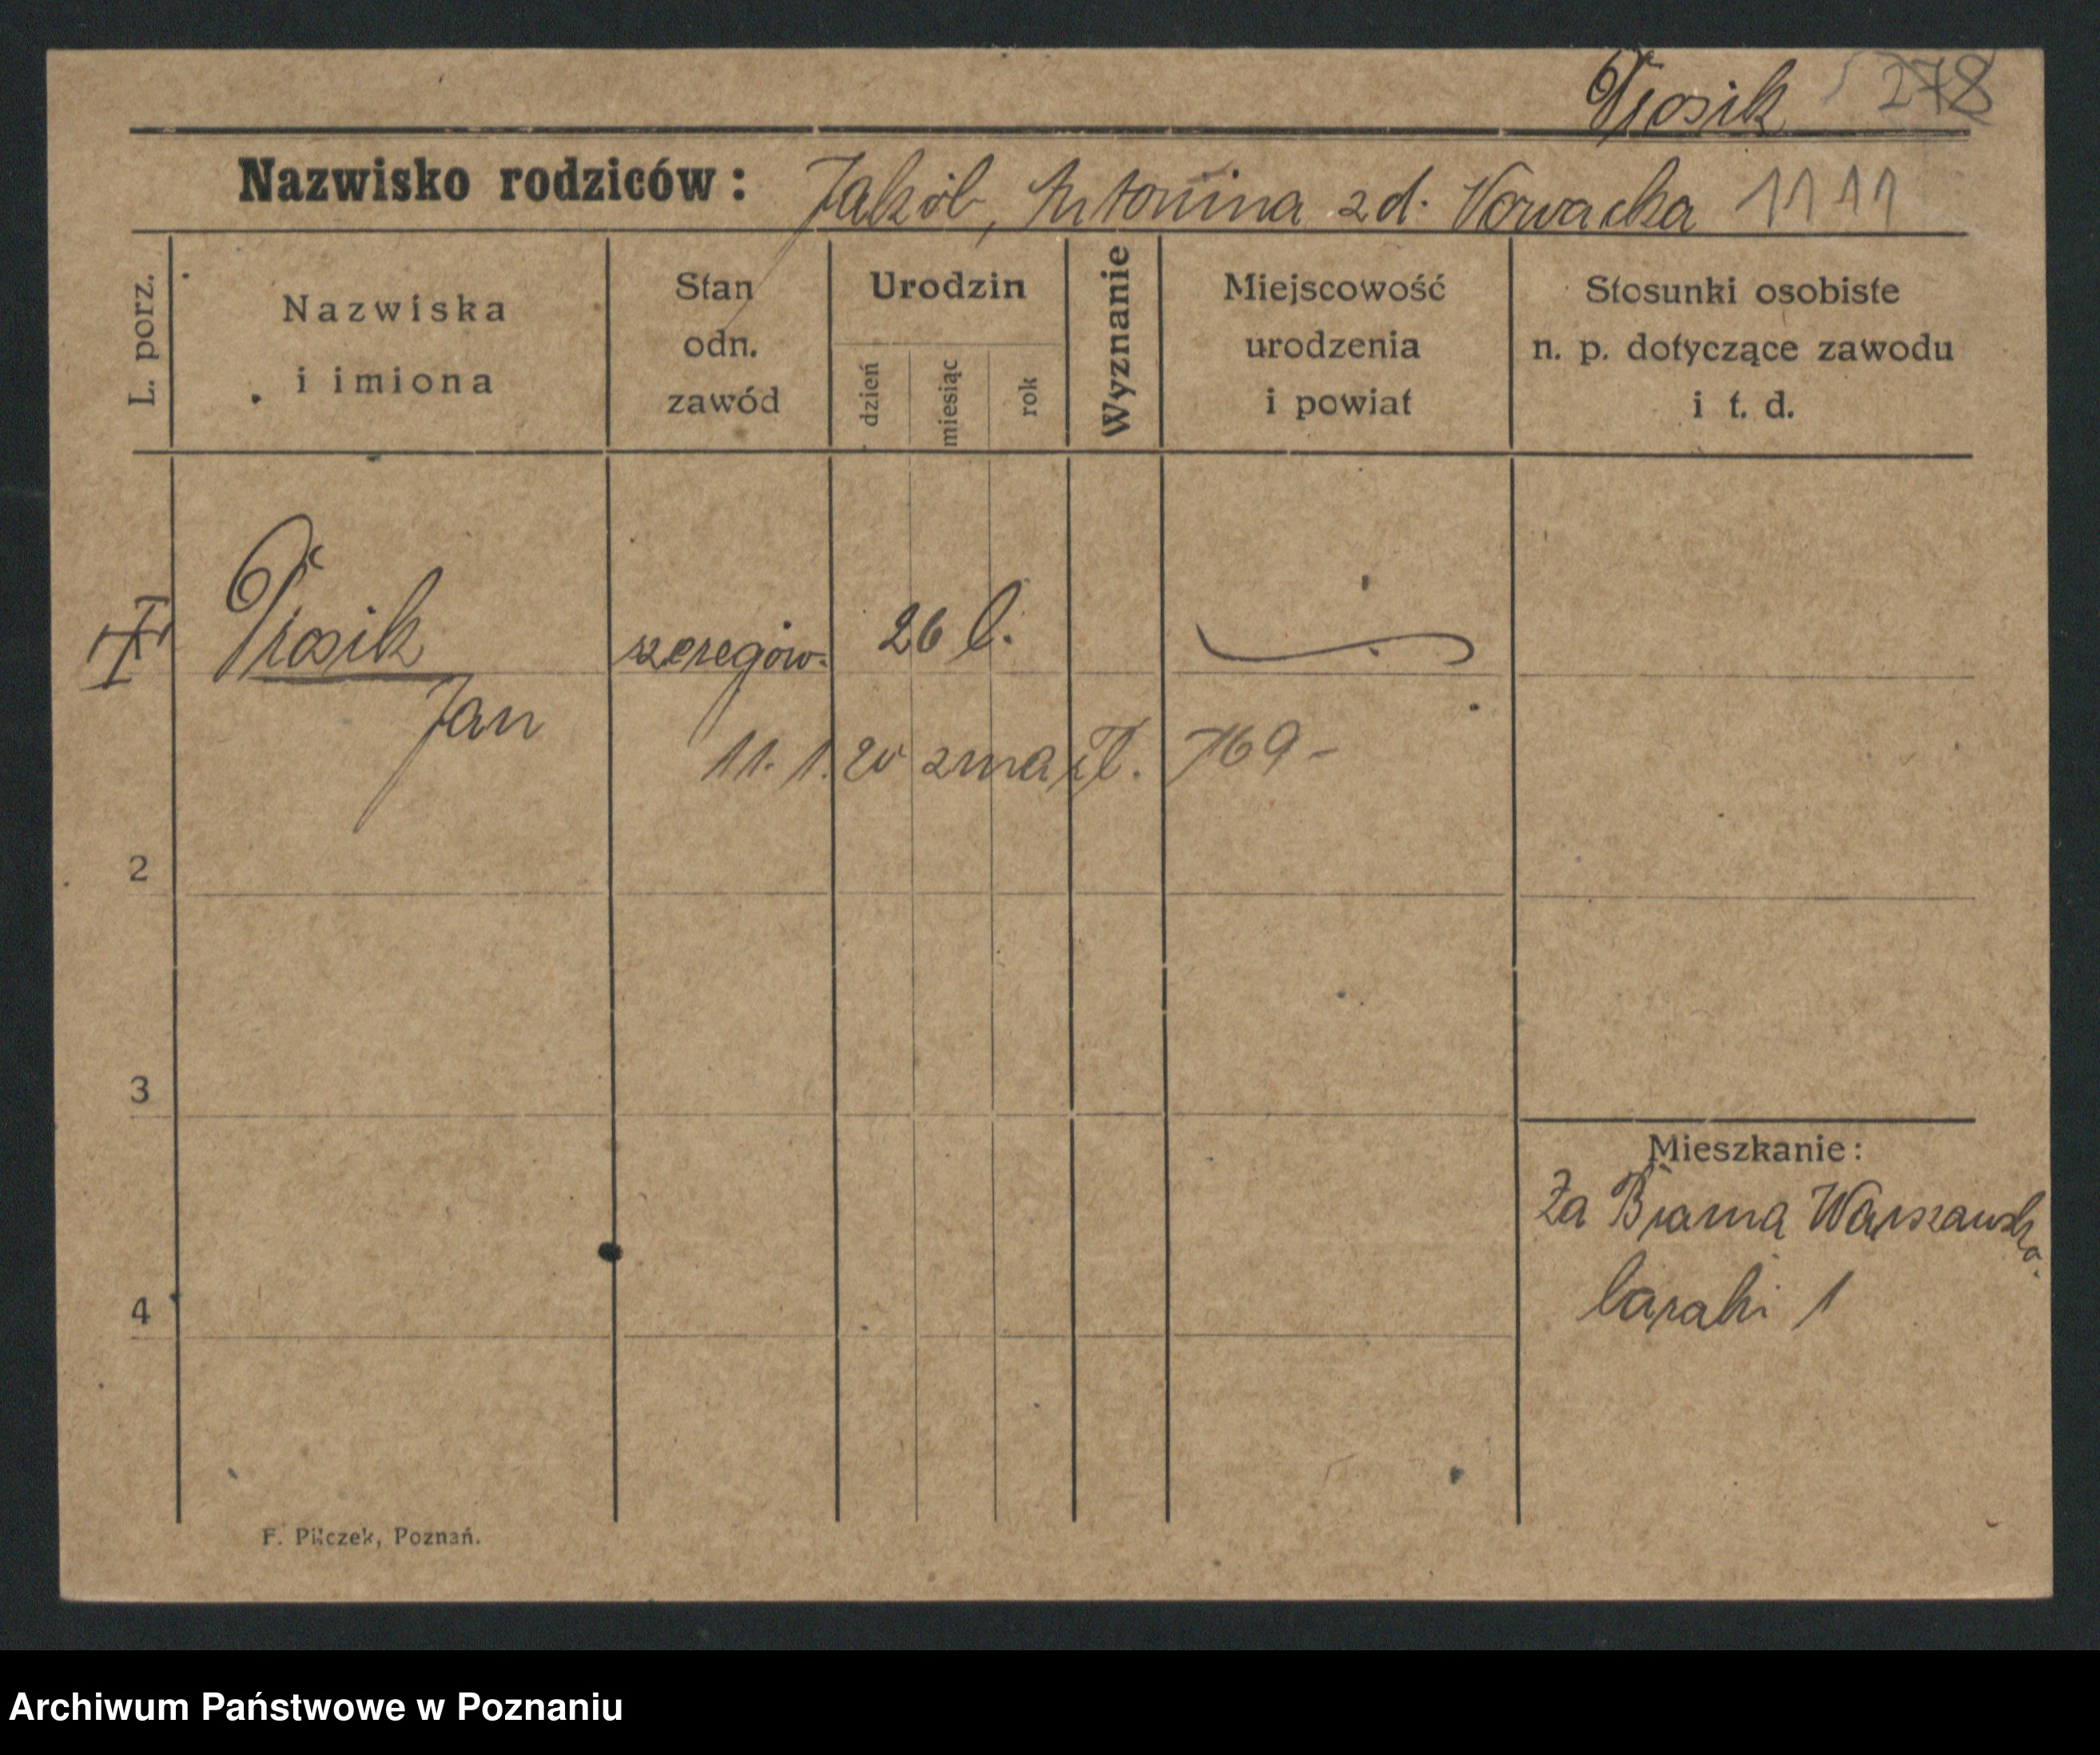 Piosik 278
Nazwisko rodziców: Jakób, Antonina zd. Nowacka 1111
L. porz.
Nazwiska i imiona
Stan odn. zawód
Urodzin
dzień
miesiąc
rok
Wyznanie
Miejscowość urodzenia i powiat
Stosunki osobiste n. p. dotyczące zawodu i t. d.
Piosik szeregow. 26 l.
Jan
11. 1. 20 zmarł. 769-
2
3
4
Mieszkanie:
Za Bramą Warszawską
baraki 1
F. Pilczek, Poznań.
Archiwum Państwowe w Poznaniu